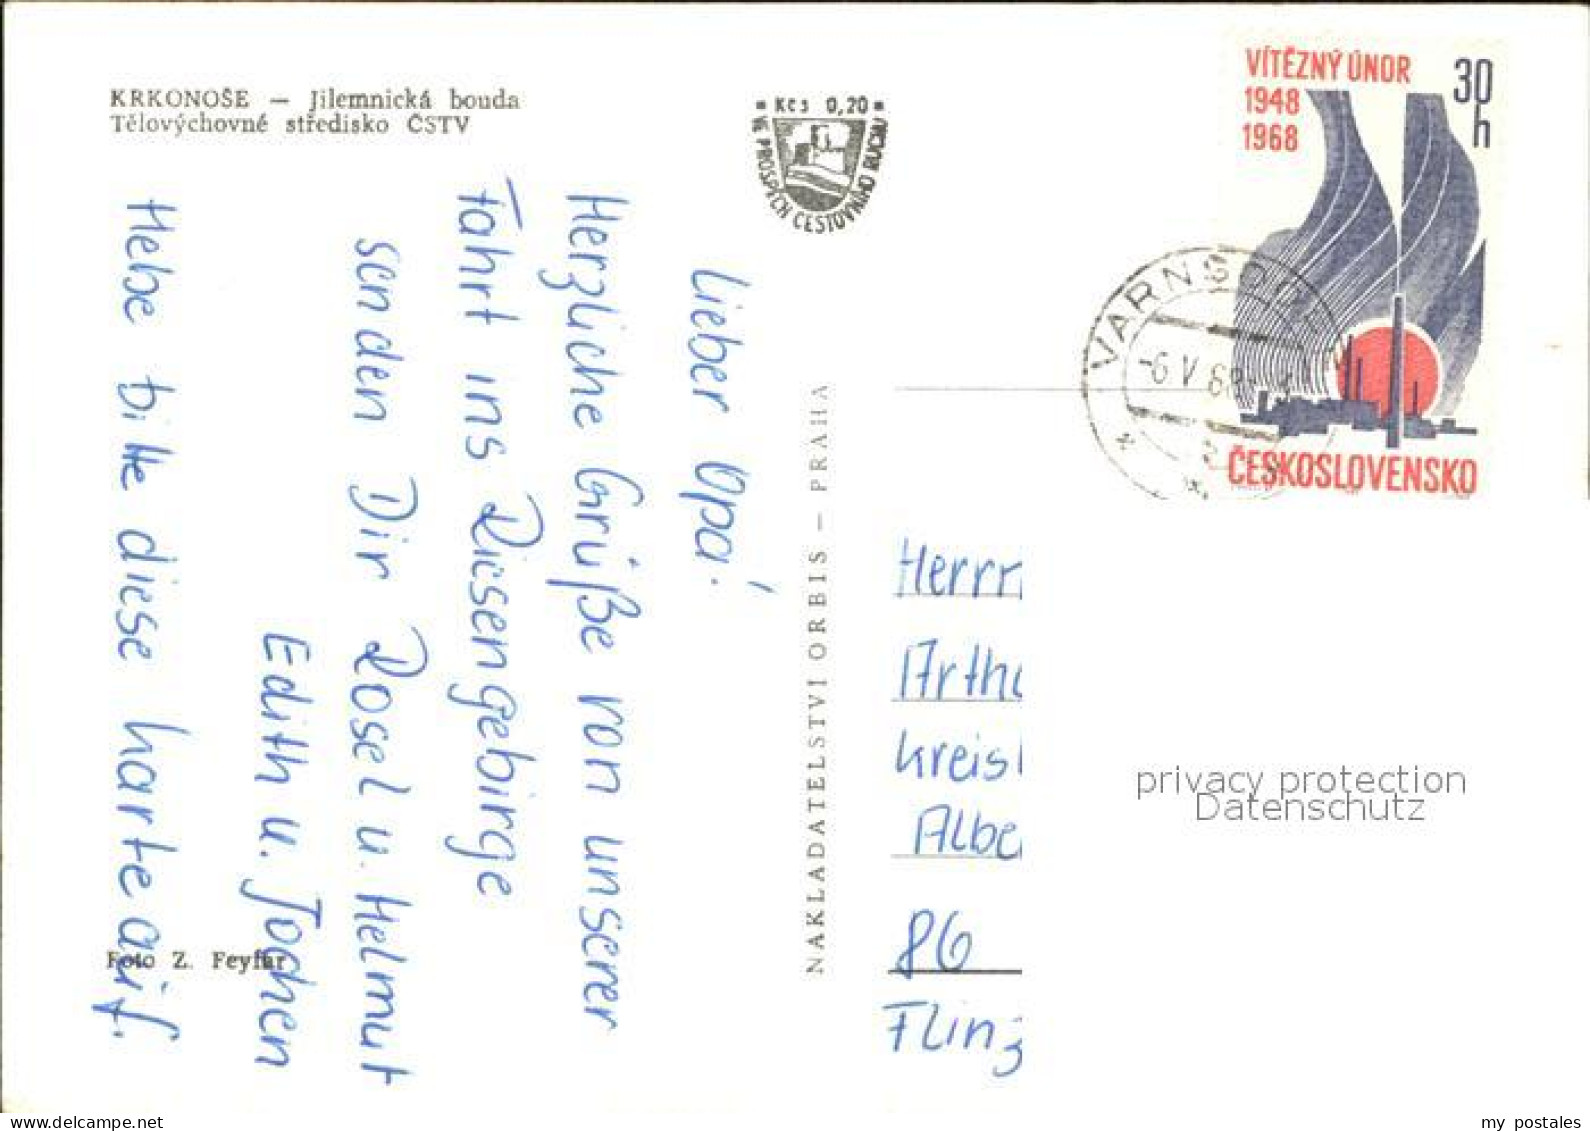 KRKONOŠE — Jilemnická bouda
Tělovýchovné středisko ČSTV
Kčs 0,20
VE PROSPĚCH CESTOVNÍHO RUCHU
VÍTĚZNÝ ÚNOR
1948
1968
30 h
ČESKOSLOVENSKO
VARNSDORF
-6.V.68
Lieber Opa!
Herzliche Grüße von unserer
Fahrt ins Riesengebirge
senden Dir Rosel u. Helmut
Edith u. Jochen
Hebe bitte diese Karte auf.
Foto Z. Feyfar
NAKLADATELSTVÍ ORBIS — PRAHA
Herrn
Arthu
Kreis
Albe
86
Flinz
privacy protection
Datenschutz
www.delcampe.net
my_postales